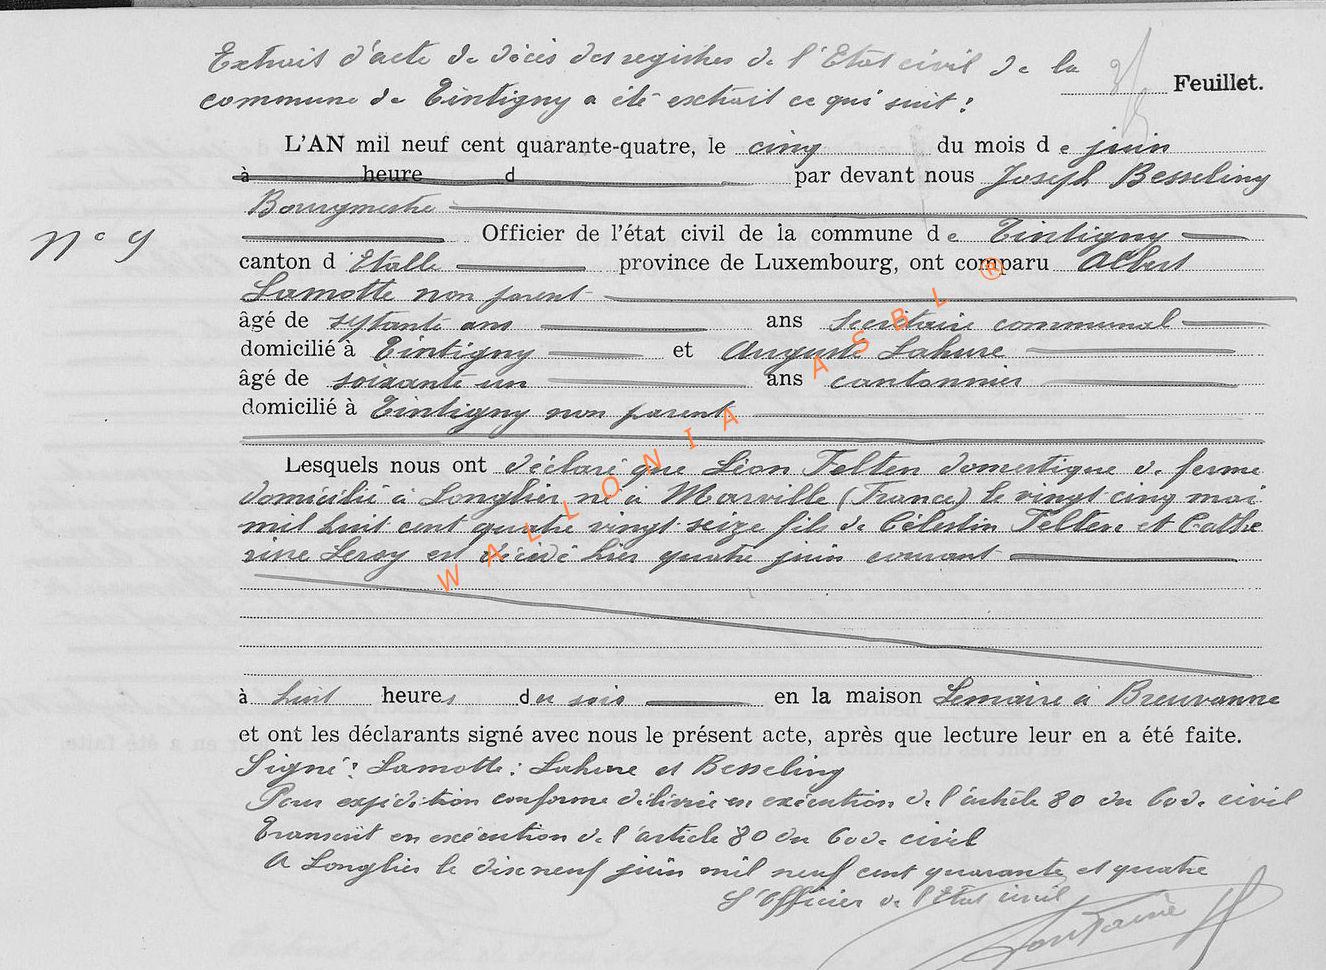 Extrait d'acte de décès des registres de l'Etat civil de la
commune de Tintigny a été extrait ce qui suit :
Feuillet.
L'AN mil neuf cent quarante-quatre, le cinq du mois de juin
à heure d par devant nous Joseph Besseling
Bourgmestre
N° 9
Officier de l'état civil de la commune de Tintigny
canton d'Etalle province de Luxembourg, ont comparu Albert
Lamotte non parent
âgé de septante ans ans secrétaire communal
domicilié à Tintigny et Auguste Lahure
âgé de soixante un ans cantonnier
domicilié à Tintigny non parent
Lesquels nous ont déclaré que Léon Felten domestique de ferme
domicilié à Longlier né à Marville (France) le vingt cinq mai
mil huit cent quatre vingt seize fils de Célestin Felten et Cathe
rine Leroy est décédé hier quatre juin courant
à huit heures du soir en la maison Lemaire à Breuvanne
et ont les déclarants signé avec nous le présent acte, après que lecture leur en a été faite.
Signé : Lamotte : Lahure et Besseling
Pour expédition conforme délivrée en exécution de l'article 80 du Code civil
Transcrit en exécution de l'article 80 du Code civil
A Longlier le dix neuf juin mil neuf cent quarante et quatre
L'Officier de l'Etat civil
Fontaine
WALLONIA ASBL ®